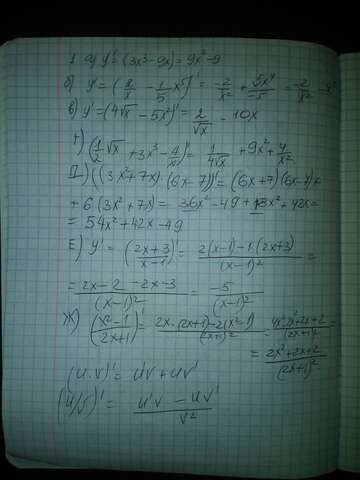 1. а) y' = (3x³ - 9x) = 9x² - 9
б) y' = (2/x - 1/5 x⁵)' = -2/x² + 5x⁴/-5 = -2/x² - x⁴
в) y' = (4√x - 5x²)' = 2/√x - 10x
г) (1/2 √x + 3x³ - 4/x)' = 1/4√x + 9x² + 4/x²
Д) ((3x² + 7x) · (6x - 7))' = (6x + 7)(6x - 7) +
+ 6(3x² + 7x) = 36x² - 49 + 18x² + 42x =
= 54x² + 42x - 49
Е) y' = (2x + 3 / x - 1)' = 2(x - 1) - 1(2x + 3) / (x - 1)² =
= 2x - 2 - 2x - 3 / (x - 1)² = -5 / (x - 1)²
Ж) (x² - 1 / 2x + 1)' = 2x · (2x + 1) - 2(x² - 1) / (2x + 1)² = 4x² - 2x² + 2x + 2 / (2x + 1)²
= 2x² + 2x + 2 / (2x + 1)²
(u · v)' = u'v + uv'
(u/v)' = u'v - uv' / v²